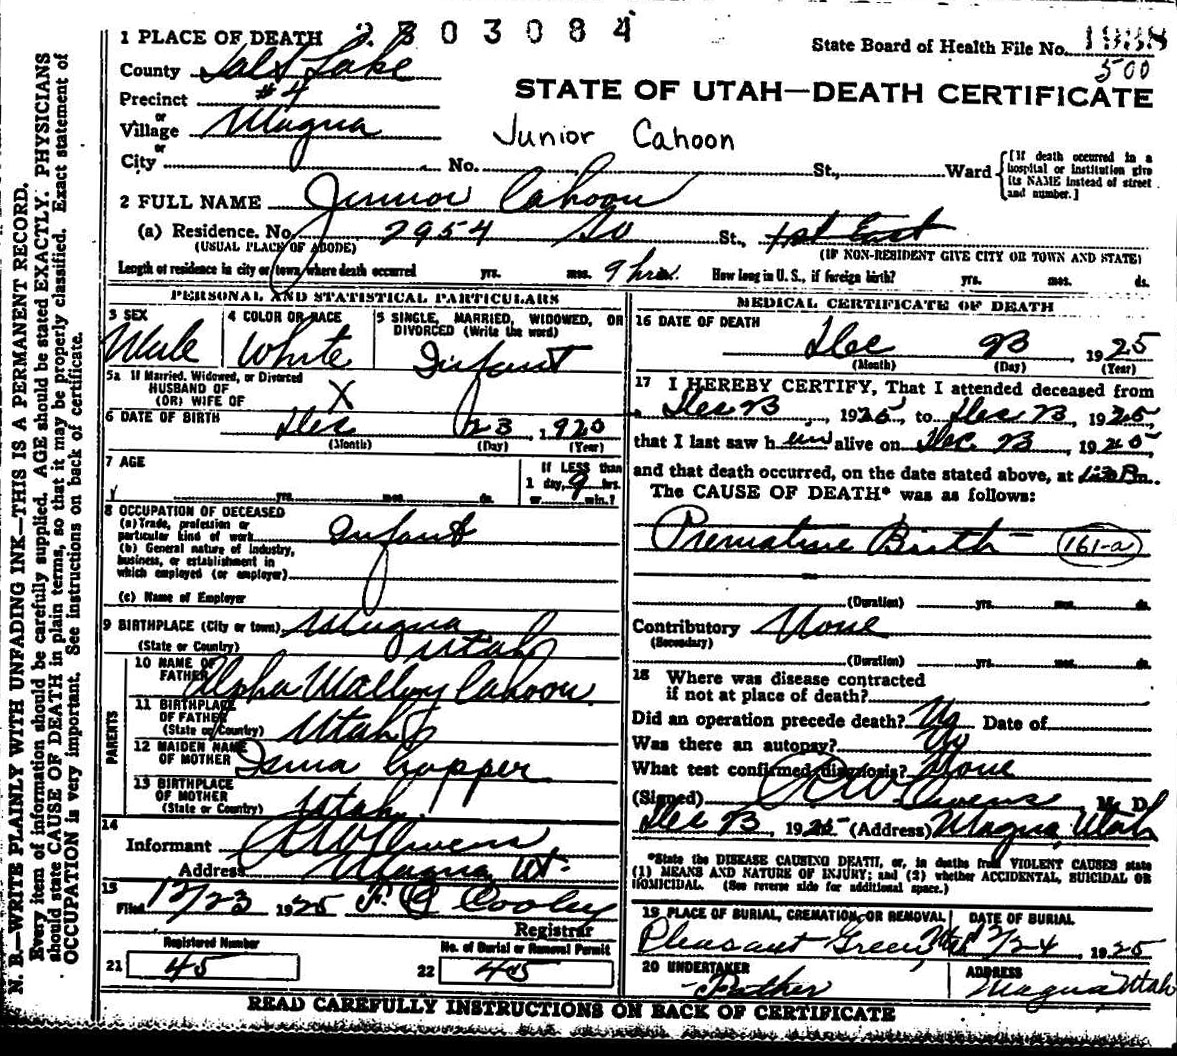 2 3 0 3 0 8 4
State Board of Health File No. 1938
500
STATE OF UTAH—DEATH CERTIFICATE
1 PLACE OF DEATH
County Salt Lake
Precinct #4
or
Village Magna
or
City No. St., Ward
[If death occurred in a hospital or institution give its NAME instead of street and number.]
Junior Cahoon
2 FULL NAME Junior Cahoon
(a) Residence. No. 2954 So St., 1st East
(USUAL PLACE OF ABODE) (IF NON-RESIDENT GIVE CITY OR TOWN AND STATE)
Length of residence in city or town where death occurred yrs. mos. 9 hrs. How long in U. S., if foreign birth? yrs. mos. ds.
PERSONAL AND STATISTICAL PARTICULARS
3 SEX
Male
4 COLOR OR RACE
White
5 SINGLE, MARRIED, WIDOWED, OR
DIVORCED (Write the word)
Infant
5a If Married, Widowed, or Divorced
HUSBAND OF
(OR) WIFE OF X
6 DATE OF BIRTH Dec 23, 1920
(Month) (Day) (Year)
7 AGE
yrs. mos. ds.
If LESS than
1 day, 9 hrs.
or min.?
8 OCCUPATION OF DECEASED
(a) Trade, profession or
particular kind of work Infant
(b) General nature of industry,
business, or establishment in
which employed (or employer)
(c) Name of Employer
9 BIRTHPLACE (City or town) Magna
(State or Country) Utah
PARENTS
10 NAME OF
FATHER Alpha Malloy Cahoon
11 BIRTHPLACE
OF FATHER
(State or Country) Utah
12 MAIDEN NAME
OF MOTHER Isma Copper
13 BIRTHPLACE
OF MOTHER
(State or Country) Utah
14
Informant Owens
Address Magna Ut.
15
Filed 12/23 1925 F. C Cooley
Registrar
Registered Number
21 45
No. of Burial or Removal Permit
22 45
MEDICAL CERTIFICATE OF DEATH
16 DATE OF DEATH
Dec 23, 1925
(Month) (Day) (Year)
17 I HEREBY CERTIFY, That I attended deceased from
Dec 23, 1925, to Dec 23, 1925,
that I last saw h im alive on Dec. 23, 1925,
and that death occurred, on the date stated above, at m.
The CAUSE OF DEATH* was as follows:
Premature Birth 161-a
(Duration) yrs. mos. ds.
Contributory None
(Secondary)
(Duration) yrs. mos. ds.
18 Where was disease contracted
if not at place of death?
Did an operation precede death? No Date of
Was there an autopsy? No
What test confirmed diagnosis? None
(Signed) Owens, M. D.
Dec 23, 1925 (Address) Magna, Utah
*State the DISEASE CAUSING DEATH, or, in deaths from VIOLENT CAUSES state
(1) MEANS AND NATURE OF INJURY; and (2) whether ACCIDENTAL, SUICIDAL OR
HOMICIDAL. (See reverse side for additional space.)
19 PLACE OF BURIAL, CREMATION, OR REMOVAL DATE OF BURIAL
Pleasant Green, 12/24, 1925
20 UNDERTAKER ADDRESS
Father Magna, Utah
READ CAREFULLY INSTRUCTIONS ON BACK OF CERTIFICATE
N. B.—WRITE PLAINLY WITH UNFADING INK—THIS IS A PERMANENT RECORD.
Every item of information should be carefully supplied. AGE should be stated EXACTLY. PHYSICIANS
should state CAUSE OF DEATH in plain terms, so that it may be properly classified. Exact statement of
OCCUPATION is very important. See instructions on back of certificate.